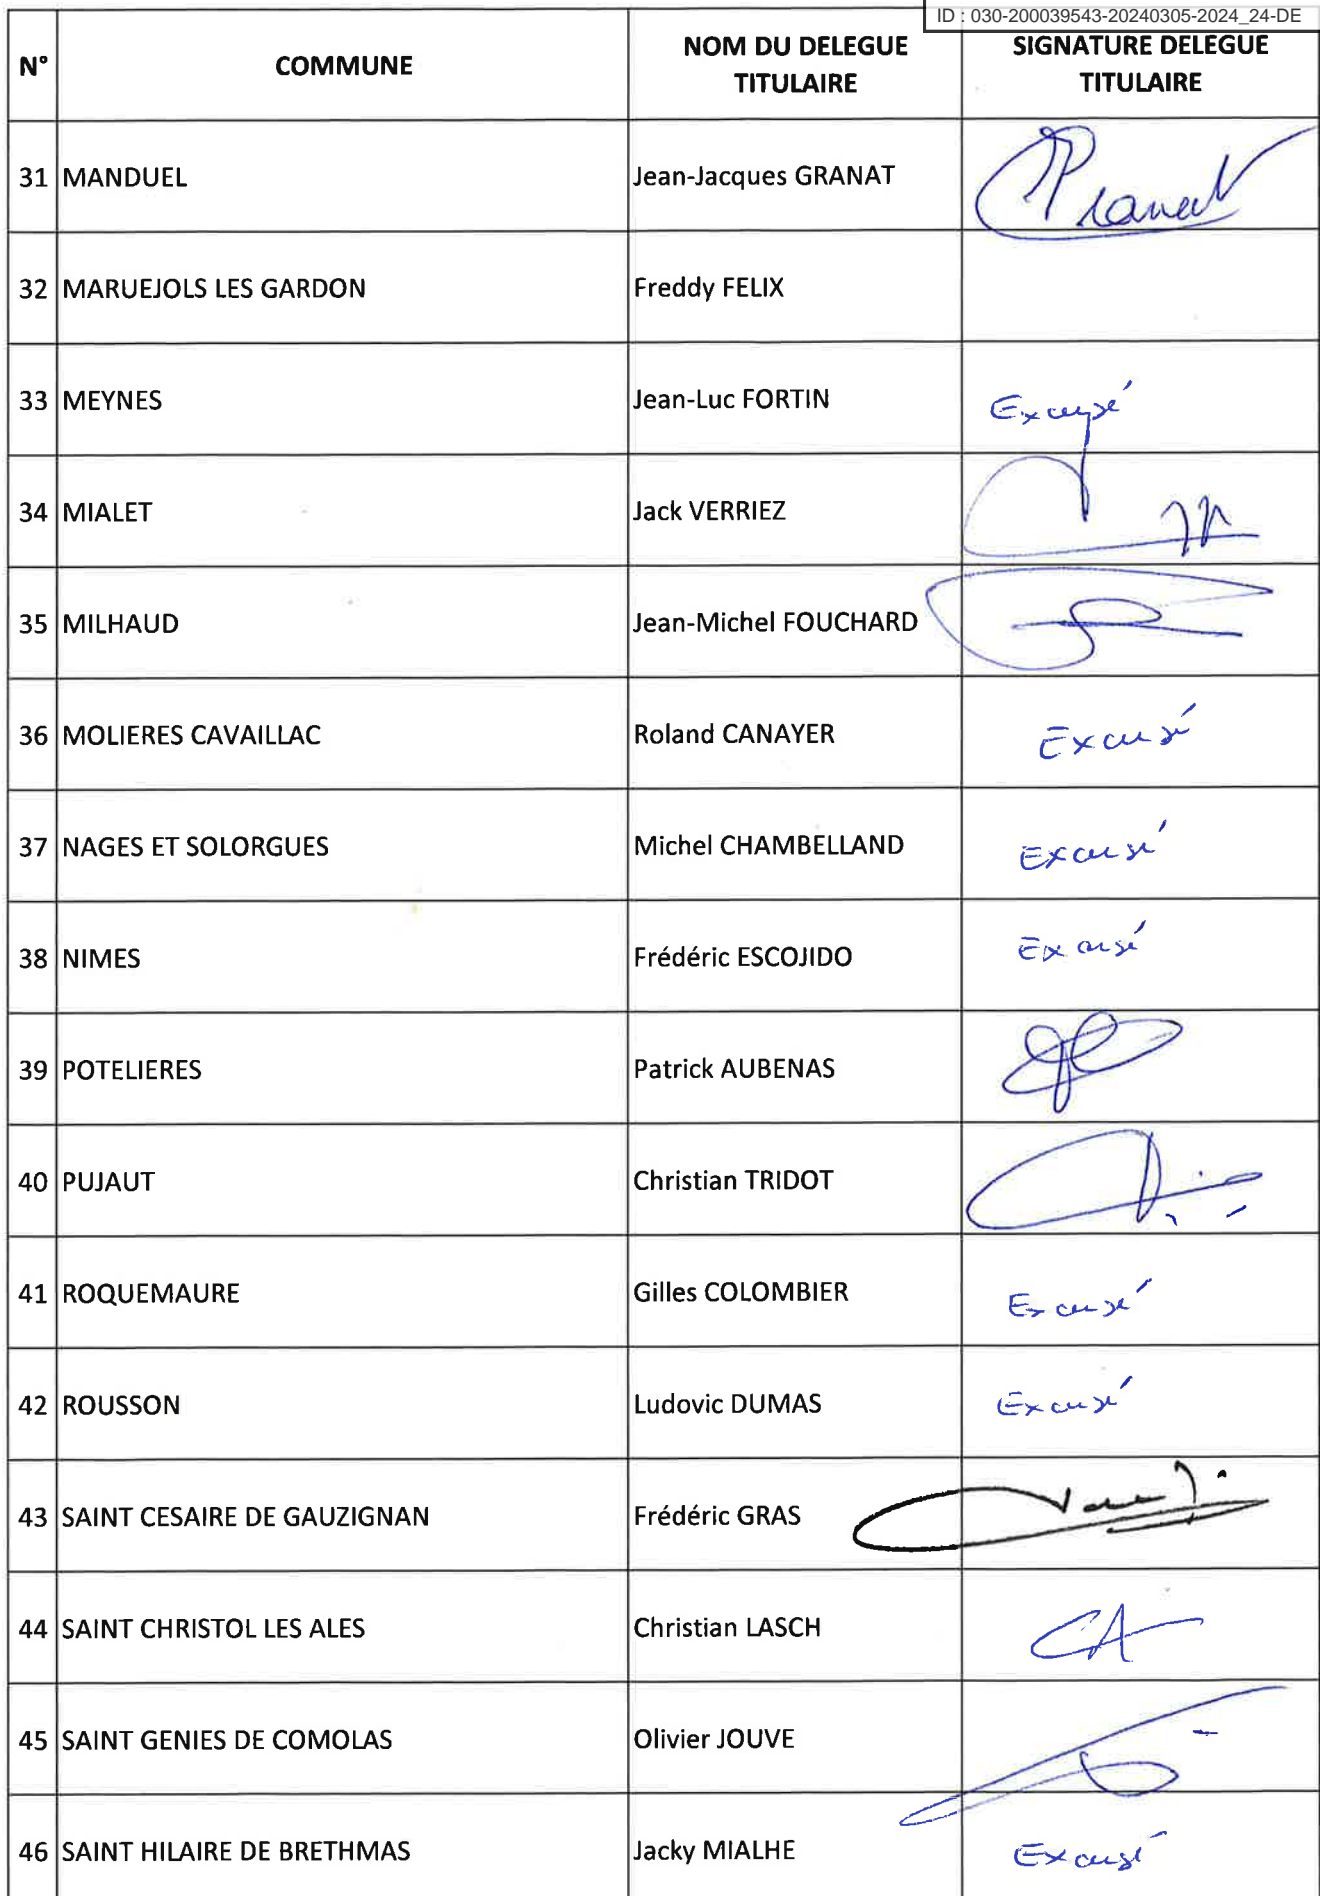 ID : 030-200039543-20240305-2024_24-DE
N° COMMUNE NOM DU DELEGUE TITULAIRE SIGNATURE DELEGUE TITULAIRE
31 MANDUEL Jean-Jacques GRANAT
32 MARUEJOLS LES GARDON Freddy FELIX
33 MEYNES Jean-Luc FORTIN Excusé
34 MIALET Jack VERRIEZ
35 MILHAUD Jean-Michel FOUCHARD
36 MOLIERES CAVAILLAC Roland CANAYER Excusé
37 NAGES ET SOLORGUES Michel CHAMBELLAND Excusé
38 NIMES Frédéric ESCOJIDO Excusé
39 POTELIERES Patrick AUBENAS
40 PUJAUT Christian TRIDOT
41 ROQUEMAURE Gilles COLOMBIER Excusé
42 ROUSSON Ludovic DUMAS Excusé
43 SAINT CESAIRE DE GAUZIGNAN Frédéric GRAS
44 SAINT CHRISTOL LES ALES Christian LASCH
45 SAINT GENIES DE COMOLAS Olivier JOUVE
46 SAINT HILAIRE DE BRETHMAS Jacky MIALHE Excusé